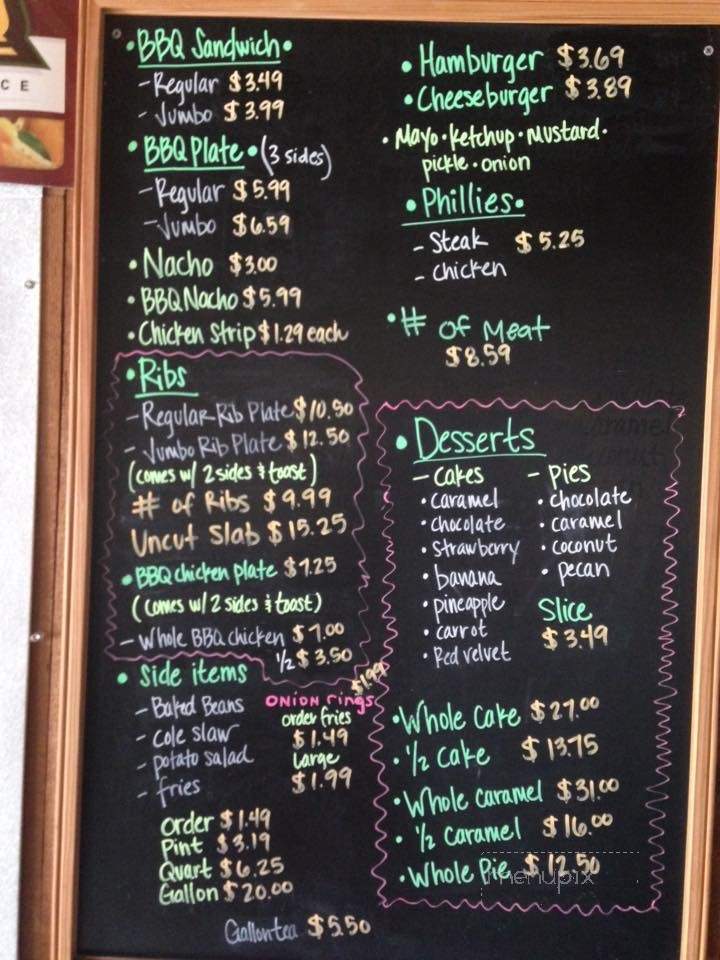 CE
• BBQ Sandwich •
- Regular $3.49
- Jumbo $3.99
• BBQ Plate • (3 sides)
- Regular $5.99
- Jumbo $6.59
• Nacho $3.00
• BBQ Nacho $5.99
• Chicken Strip $1.29 each
• Ribs
- Regular-Rib Plate $10.50
- Jumbo Rib Plate $12.50
(comes w/ 2 sides & toast)
# of Ribs $9.99
Uncut Slab $15.25
• BBQ chicken plate $7.25
(comes w/ 2 sides & toast)
- Whole BBQ chicken $7.00
1/2 $3.50
• Side items
- Baked Beans
- cole slaw
- potato salad
- fries
$1.99
ONION rings
order fries
$1.49
Large
$1.99
Order $1.49
Pint $3.19
Quart $6.25
Gallon $20.00
Gallon tea $5.50
• Hamburger $3.69
• Cheeseburger $3.89
• Mayo • ketchup • mustard •
pickle • onion
• Phillies •
- Steak $5.25
- chicken
• # of Meat
$8.59
• Desserts
- cakes
• caramel
• chocolate
• strawberry
• banana
• pineapple
• carrot
• Red velvet
- pies
• chocolate
• caramel
• coconut
• pecan
Slice
$3.49
• Whole Cake $27.00
• 1/2 Cake $13.75
• Whole Caramel $31.00
• 1/2 Caramel $16.00
• Whole Pie $12.50
menupix